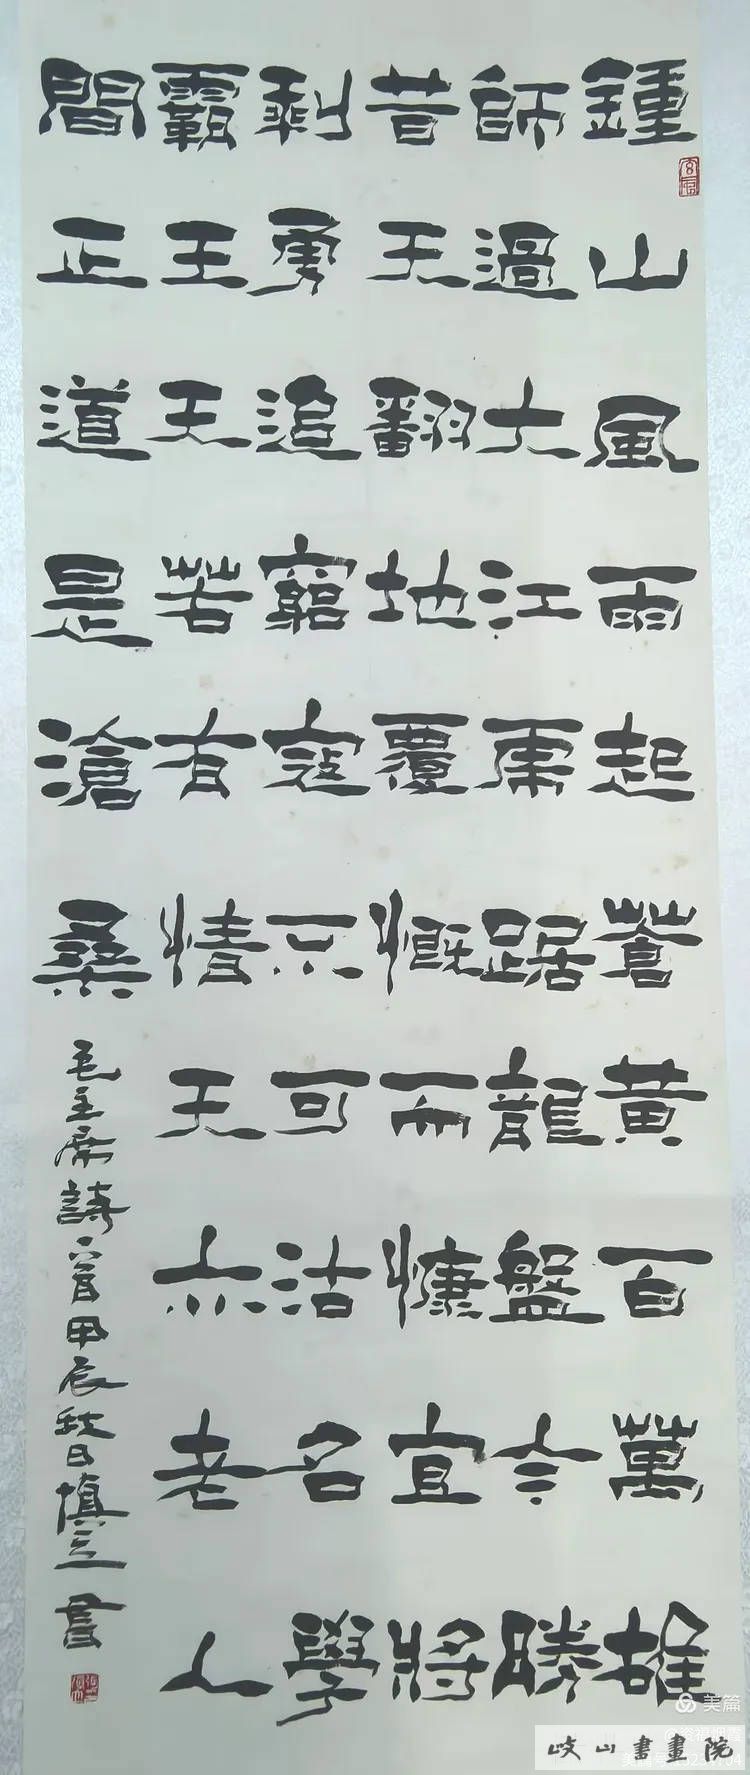 鍾山風雨起蒼黃百萬雄
師過大江虎踞龍盤今勝
昔天翻地覆慨而慷宜將
剩勇追窮寇不可沽名學
霸王天若有情天亦老人
間正道是滄桑
毛主席詩一首甲辰秋日慎書
美篇
岐山書畫院